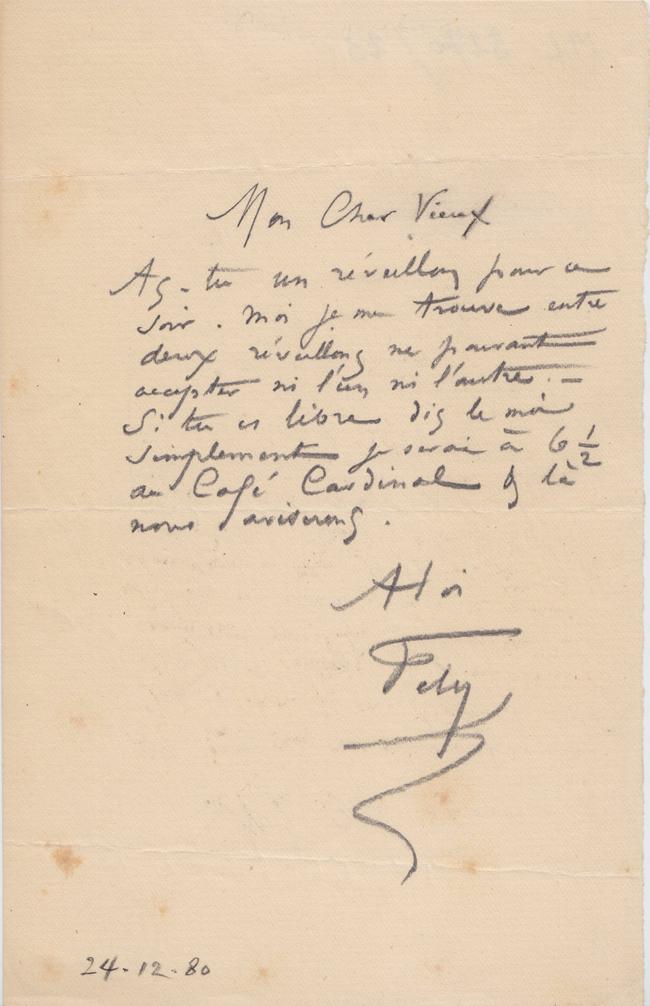 Mon Cher Vieux
As-tu un réveillon pour ce
soir. Moi je me trouve entre
deux réveillons ne pouvant
accepter ni l'un ni l'autre. —
Si tu es libre dis le moi
simplement je serai à 6 1/2
au Café Cardinal & là
nous aviserons.
A toi
Fely
24-12-80